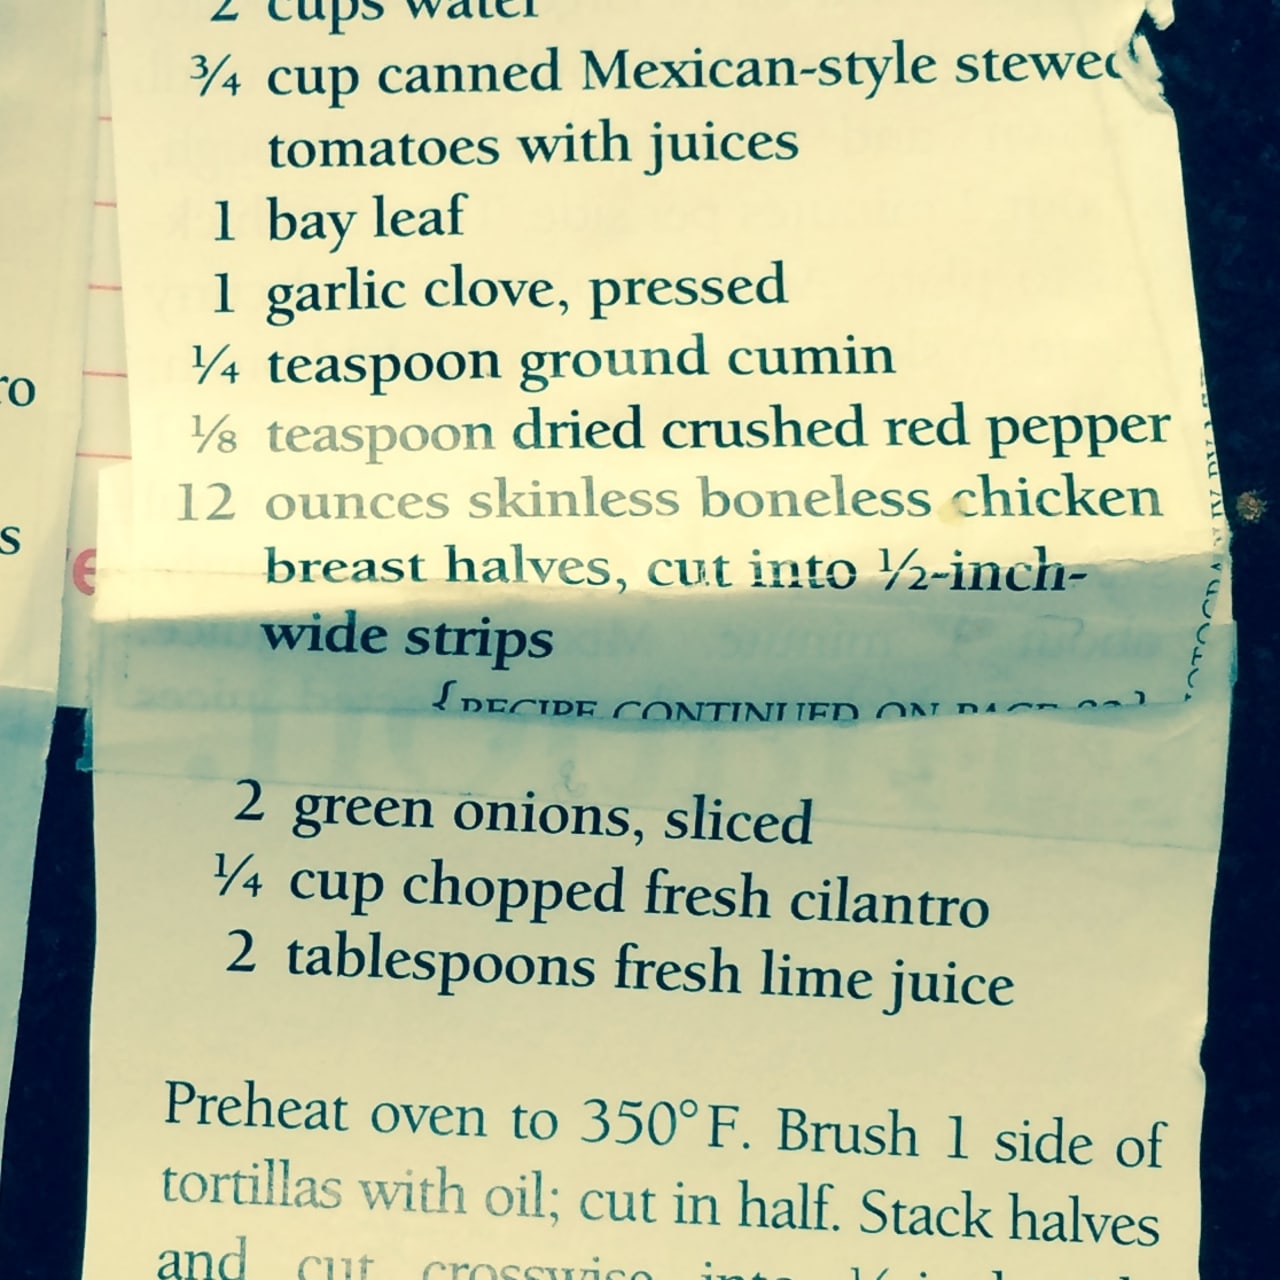 2 cups water
¾ cup canned Mexican-style stewed
tomatoes with juices
1 bay leaf
1 garlic clove, pressed
¼ teaspoon ground cumin
⅛ teaspoon dried crushed red pepper
12 ounces skinless boneless chicken
breast halves, cut into ½-inch-
wide strips
{RECIPE CONTINUED ON PAGE
2 green onions, sliced
¼ cup chopped fresh cilantro
2 tablespoons fresh lime juice
Preheat oven to 350°F. Brush 1 side of
tortillas with oil; cut in half. Stack halves
and cut crosswise into